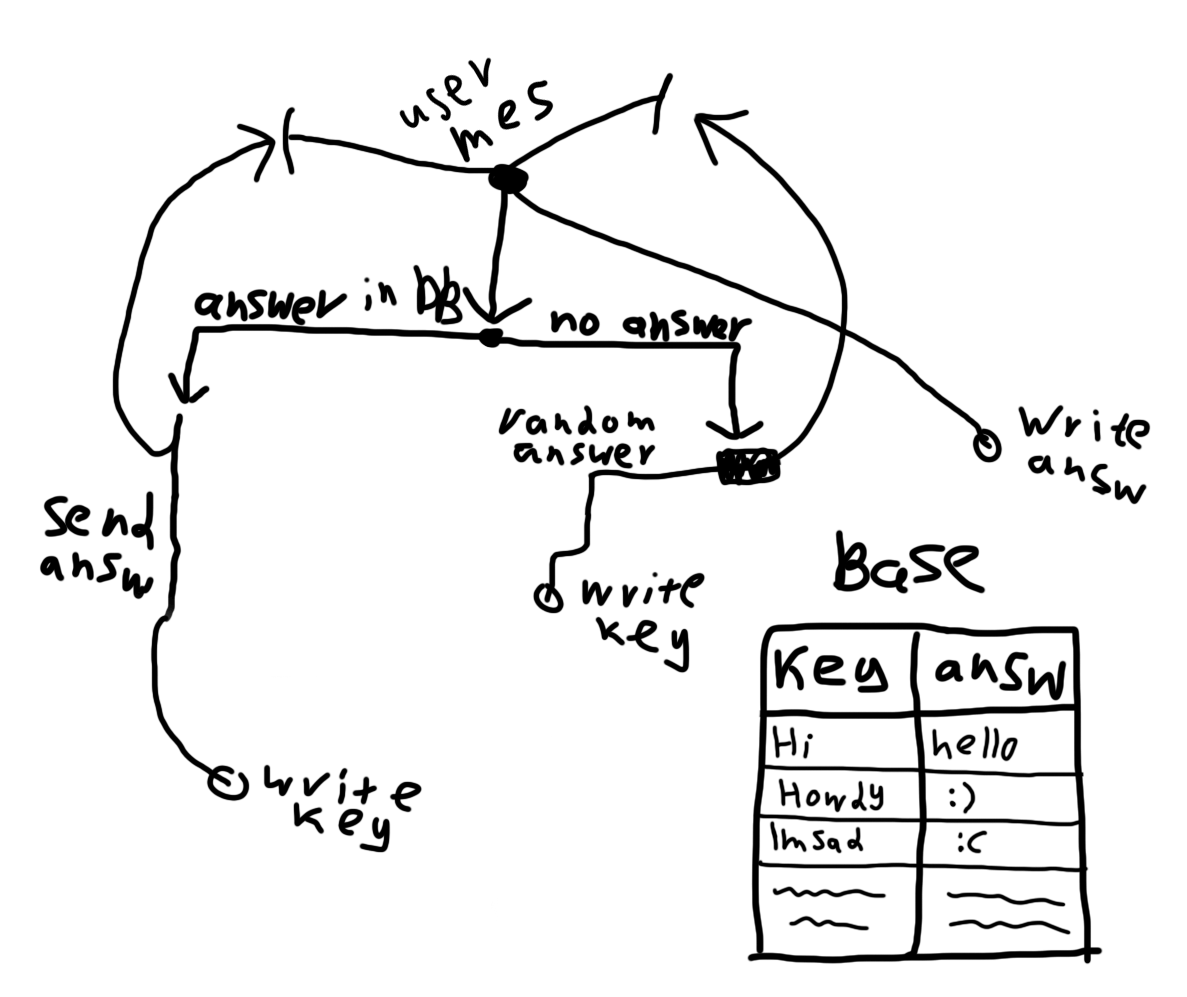 user
mes
answer in DB
no answer
random
answer
Write
answ
Send
answ
write
key
write
key
Base
Key answ
Hi hello
Howdy :)
Imsad :c